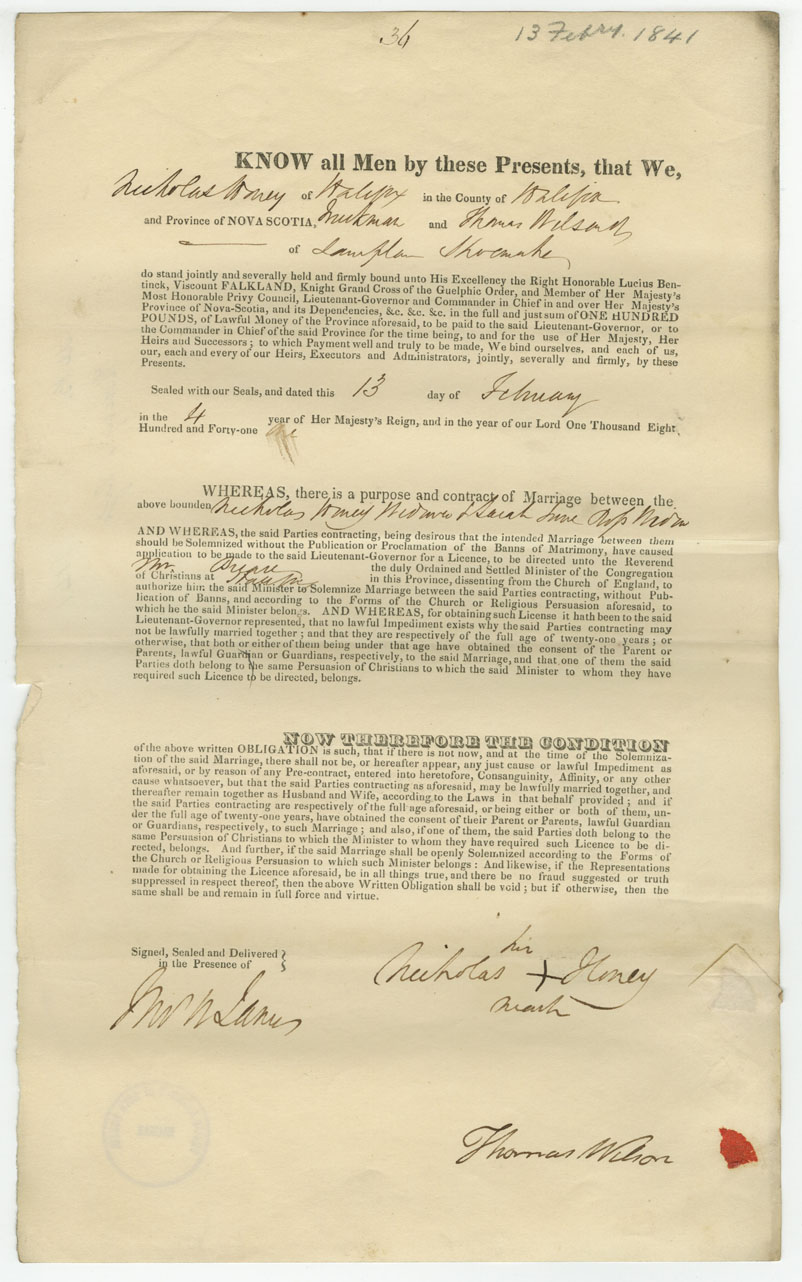 36
13 Febry. 1841
KNOW all Men by these Presents, that We,
Nicholas Honey of Halifax in the County of Halifax
and Province of NOVA SCOTIA, Truckman and Thomas Wilson
of Shoemaker
do stand jointly and severally held and firmly bound unto His Excellency the Right Honorable Lucius Ben-
tinck, Viscount FALKLAND, Knight Grand Cross of the Guelphic Order, and Member of Her Majesty's
Most Honorable Privy Council, Lieutenant-Governor and Commander in Chief in and over Her Majesty's
Province of Nova-Scotia, and its Dependencies, &c. &c. &c. in the full and just sum of ONE HUNDRED
POUNDS, of Lawful Money of the Province aforesaid, to be paid to the said Lieutenant-Governor, or to
the Commander in Chief of the said Province for the time being, to and for the use of Her Majesty, Her
Heirs and Successors; to which Payment well and truly to be made, We bind ourselves, and each of us,
our, each and every of our Heirs, Executors and Administrators, jointly, severally and firmly, by these
Presents.
Sealed with our Seals, and dated this 13 day of February
in the 4 year of Her Majesty's Reign, and in the year of our Lord One Thousand Eight
Hundred and Forty-one
WHEREAS, there is a purpose and contract of Marriage between the
above bounden Nicholas Honey Widower & Sarah Jane Ross Widow
AND WHEREAS, the said Parties contracting, being desirous that the intended Marriage between them
should be Solemnized without the Publication or Proclamation of the Banns of Matrimony, have caused
application to be made to the said Lieutenant-Governor for a Licence, to be directed unto the Reverend
the duly Ordained and Settled Minister of the Congregation
of Christians at Halifax in this Province, dissenting from the Church of England, to
authorize him the said Minister to Solemnize Marriage between the said Parties contracting, without Pub-
lication of Banns, and according to the Forms of the Church or Religious Persuasion aforesaid, to
which he the said Minister belongs. AND WHEREAS, for obtaining such License it hath been to the said
Lieutenant-Governor represented, that no lawful Impediment exists why the said Parties contracting may
not be lawfully married together; and that they are respectively of the full age of twenty-one years; or
otherwise, that both or either of them being under that age have obtained the consent of the Parent or
Parents, lawful Guardian or Guardians, respectively, to the said Marriage, and that one of them the said
Parties doth belong to the same Persuasion of Christians to which the said Minister to whom they have
required such Licence to be directed, belongs.
NOW THEREFORE THE CONDITION
of the above written OBLIGATION is such, that if there is not now, and at the time of the Solemniza-
tion of the said Marriage, there shall not be, or hereafter appear, any just cause or lawful Impediment as
aforesaid, or by reason of any Pre-contract, entered into heretofore, Consanguinity, Affinity, or any other
cause whatsoever, but that the said Parties contracting as aforesaid, may be lawfully married together, and
thereafter remain together as Husband and Wife, according to the Laws in that behalf provided; and if
the said Parties contracting are respectively of the full age aforesaid, or being either or both of them, un-
der the full age of twenty-one years, have obtained the consent of their Parent or Parents, lawful Guardian
or Guardians, respectively, to such Marriage; and also, if one of them, the said Parties doth belong to the
same Persuasion of Christians to which the Minister to whom they have required such Licence to be di-
rected, belongs. And further, if the said Marriage shall be openly Solemnized according to the Forms of
the Church or Religious Persuasion to which such Minister belongs: And likewise, if the Representations
made for obtaining the Licence aforesaid, be in all things true, and there be no fraud suggested or truth
suppressed in respect thereof, then the above Written Obligation shall be void; but if otherwise, then the
same shall be and remain in full force and virtue.
Signed, Sealed and Delivered
in the Presence of
his
Nicholas + Honey
mark
Jno W James
Thomas Wilson